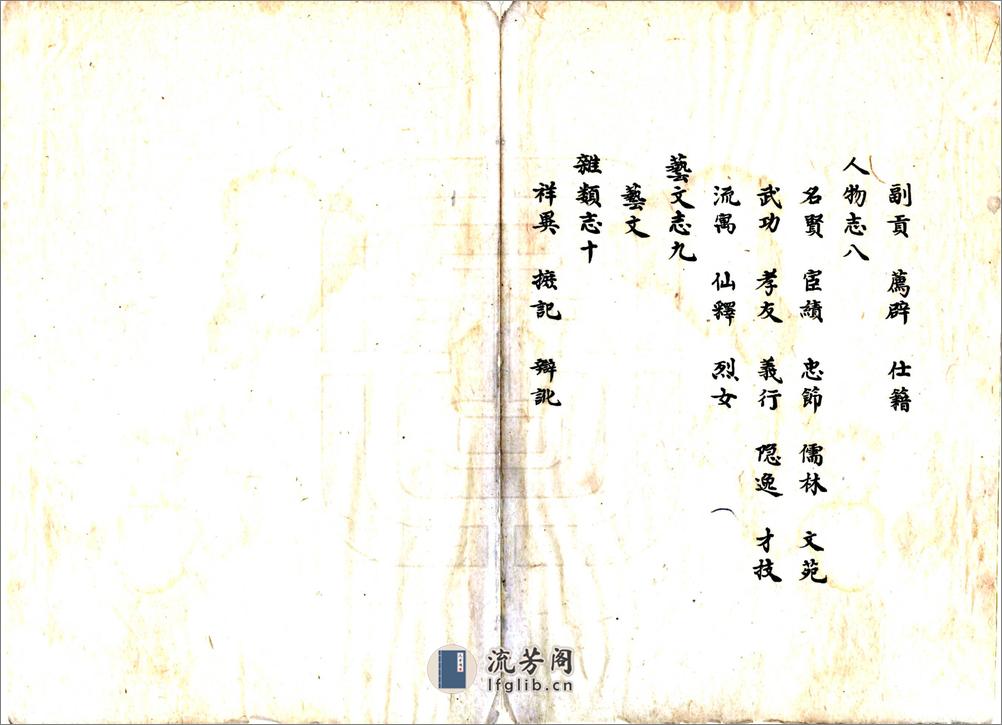 副貢 薦辟 仕籍
人物志八
名賢 宦績 忠節 儒林 文苑
武功 孝友 義行 隠逸 才技
流寓 仙釋 烈女
藝文志九
藝文
雜類志十
祥異 摭記 辯訛
流芳阁
lfglib.cn